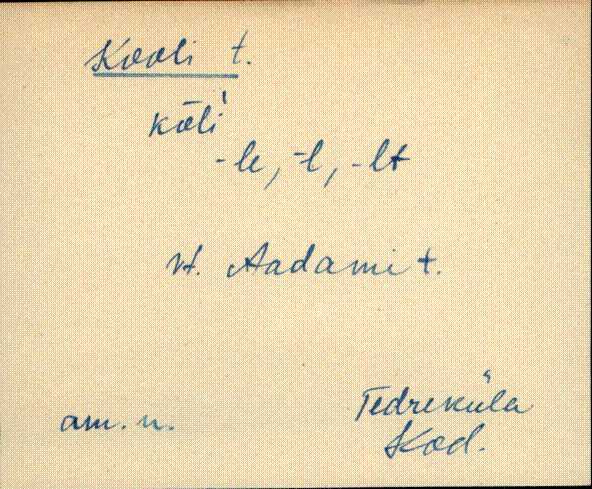 Kooli t.
kōli'
-le, -l, -lt
vt. Aadami t.
am. n.
Tedreküla
Kod.